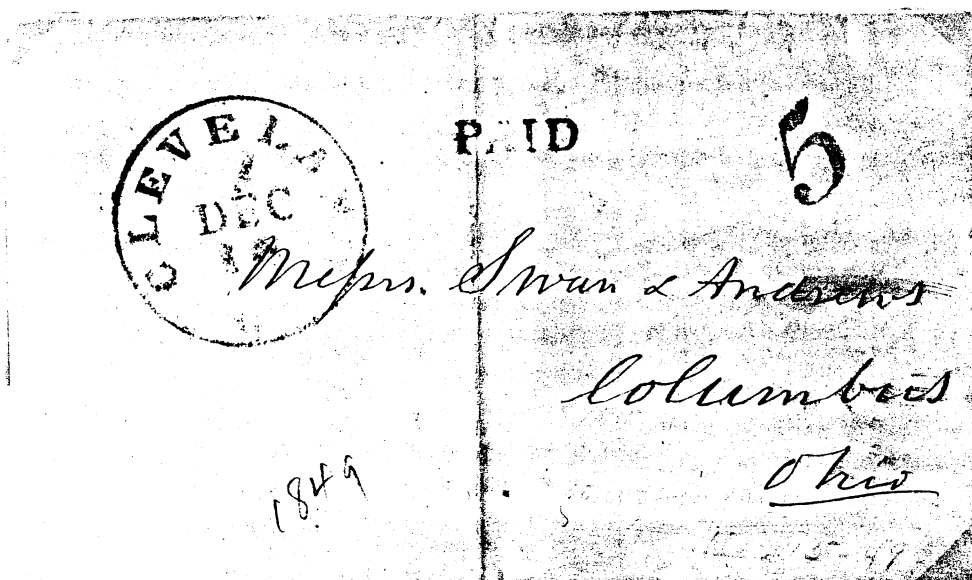 CLEVELA
DEC
PAID
5
Messrs. Swan & Andrews
Columbus
Ohio
1849